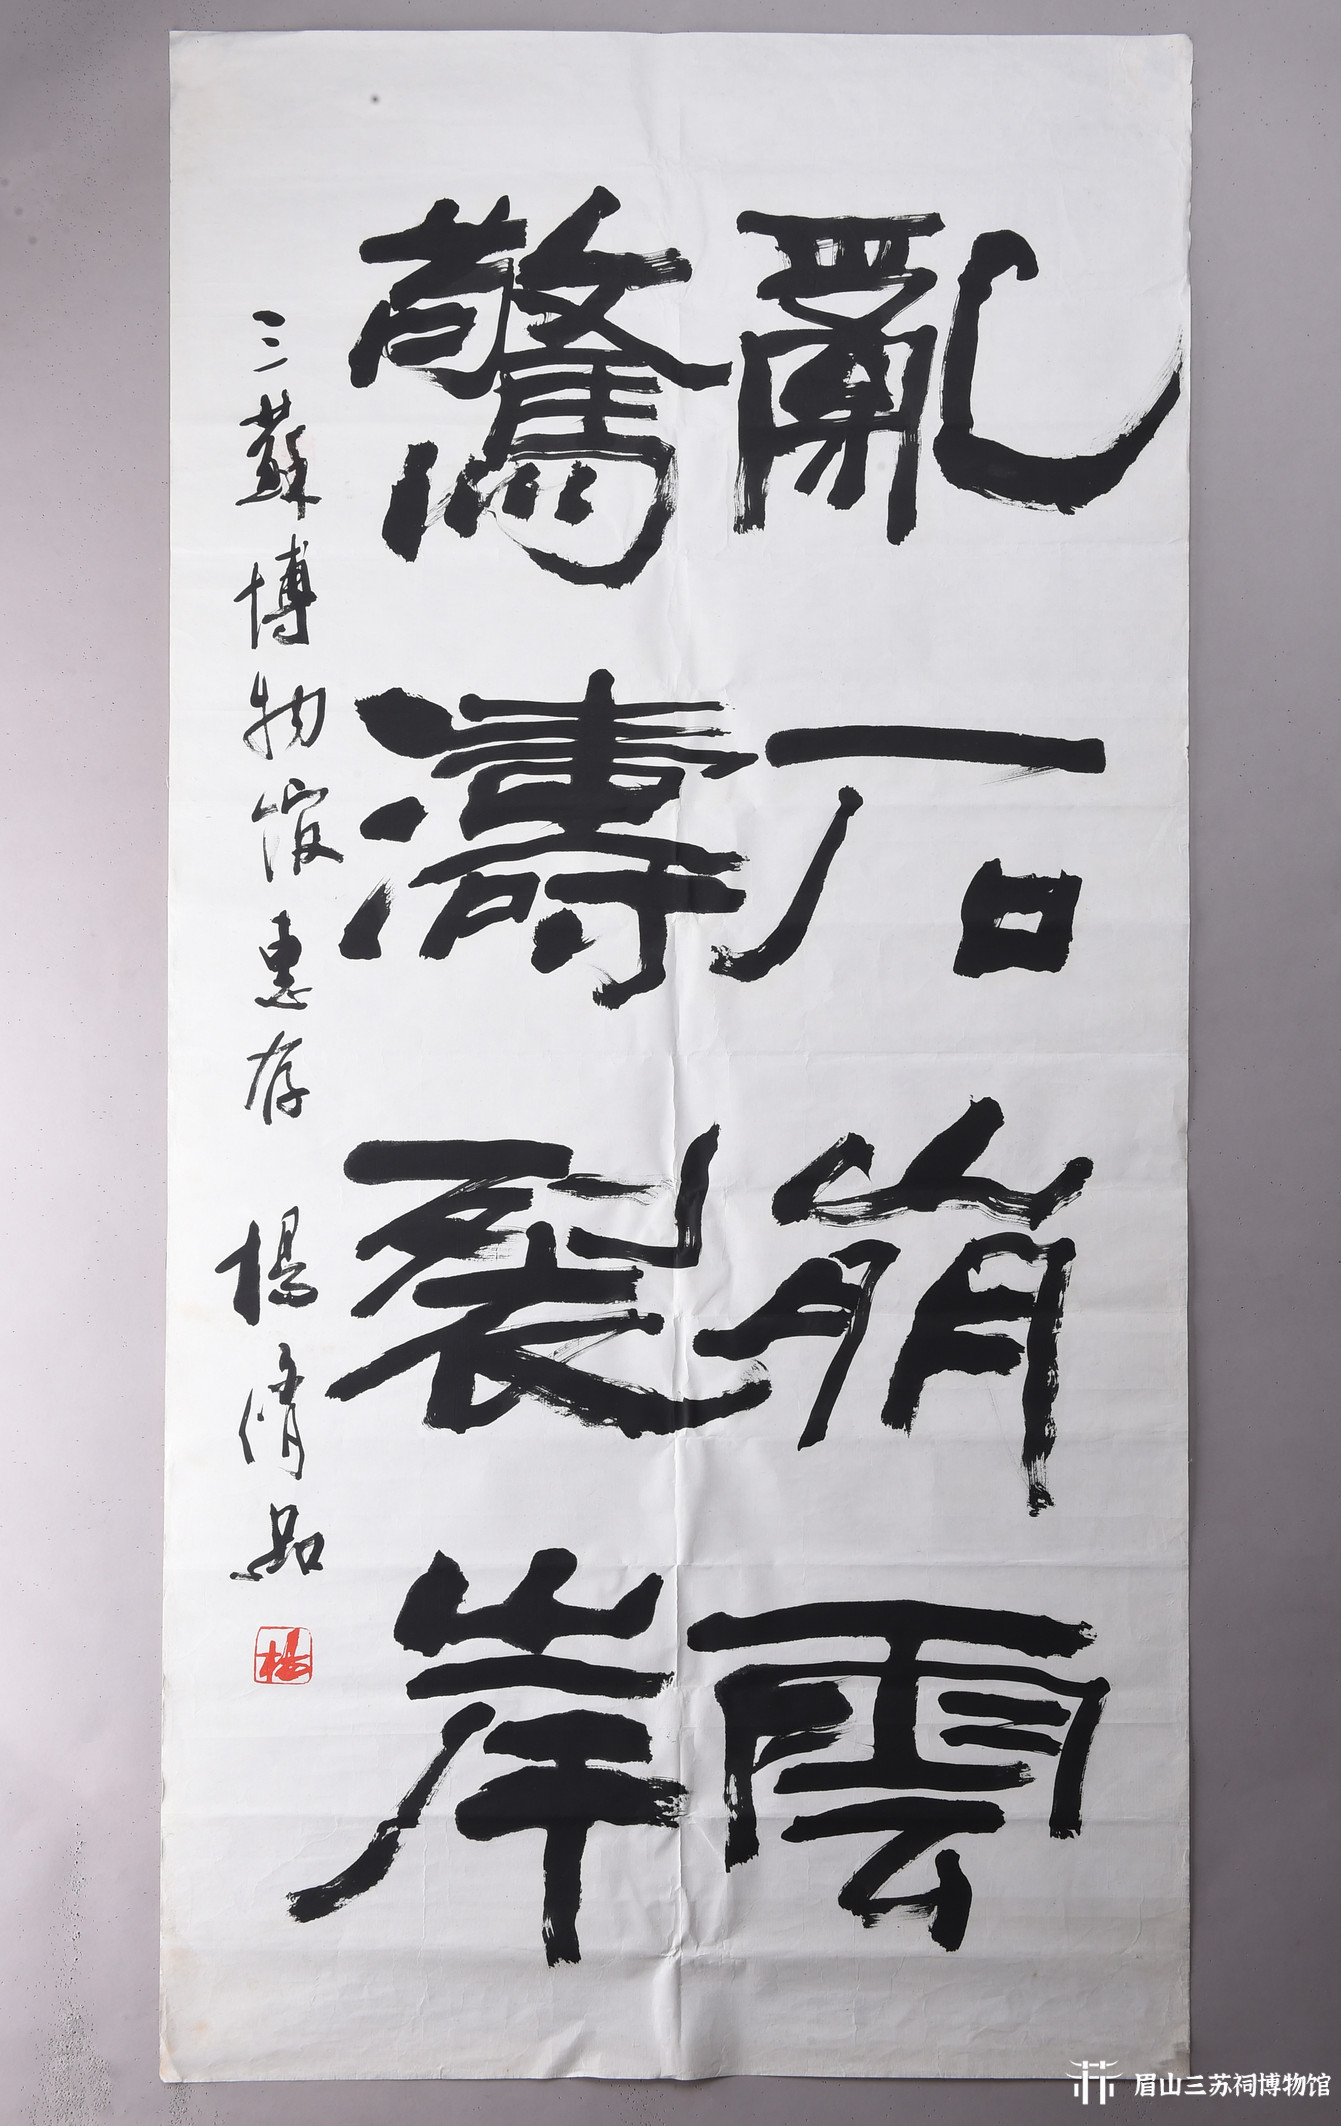 亂石崩雲
驚濤裂岸
三蘇博物館惠存 楊脩品
楊
眉山三苏祠博物馆